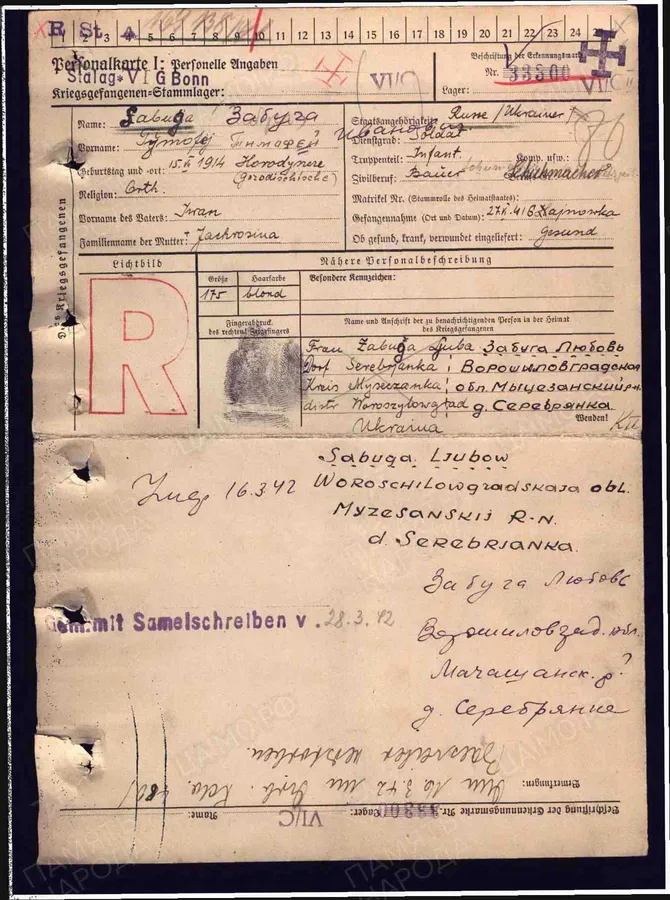 R St. A
1 2 3 4 5 6 7 8 9 10 11 12 13 14 15 16 17 18 19 20 21 22 23 24
Personalkarte I: Personelle Angaben
Stalag VI G Bonn
Kriegsgefangenen-Stammlager:
VI/C
Beschriftung der Erkennungsmarke
Nr. 33300
Lager: VI/C
Des Kriegsgefangenen
Name: Zabuga Забуга
Vorname: Tymofej Тимафей Иванович
Geburtstag und -ort: 15.VI 1914 Horodynere
(Grodischtsche)
Religion: Orth.
Vorname des Vaters: Iwan
Familienname der Mutter: Zachrosina
Staatsangehörigkeit: Russe/Ukrainer
Dienstgrad: Soldat
Truppenteil: Infant. Komp. usw.:
Zivilberuf: Bauer Schuhmacher
Matrikel Nr. (Stammrolle des Heimatstaates):
Gefangennahme (Ort und Datum): 27.VI.41 Gajnowka
Ob gesund, krank, verwundet eingeliefert: Gesund
Lichtbild
R
Nähere Personalbeschreibung
Größe Haarfarbe Besondere Kennzeichen:
175 blond
Fingerabdruck
des rechten Zeigefingers
Name und Anschrift der zu benachrichtigenden Person in der Heimat
des Kriegsgefangenen
Frau Zabuga Ljuba Забуга Любовь
Dorf Serebrjanka Ворошиловградская
Kreis Myseczanka обл. Мыцезанский р-н
distr Woroszylowgrad д. Серебрянка
Ukraina
Wenden!
Sabuga Ljubow
Woroschilowgradskaja obl.
Myzesanskij R-n.
d. Serebrjanka.
Zug. 16.3.42
Забуга Любовь
Ворошиловград. обл.
Мачащанск. р?
д. Серебрянке
Gem. mit Samelschreiben v. 28.3.42
Bemerkungen:
Am 16.3.42 im
verstorben.
Beschriftung der Erkennungsmarke Nr. 33300 Lager: VI/C Name:
ПАМЯТЬ НАРОДА
ПАМО.РФ